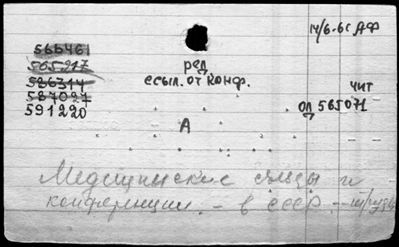 14/6-65 АФ
565461
565917
586314
587027
591220
ред
ссыл. от конф.
чит
оп 565071
А
Медицинские съезды и
конференции. - в СССР. -